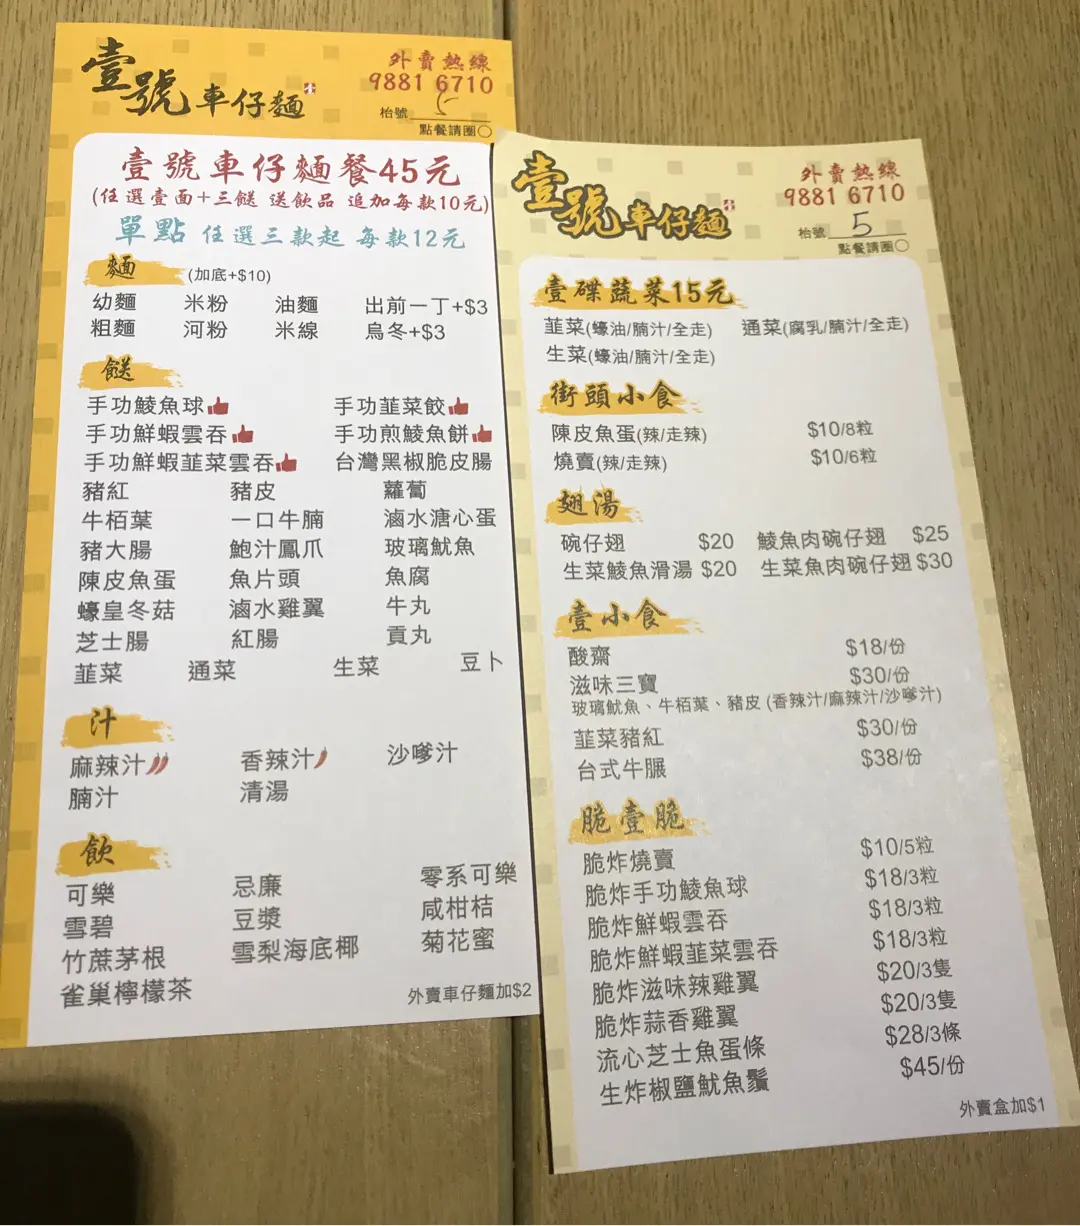 壹號車仔麵
外賣熱線
9881 6710
枱號 5
點餐請圈○
壹號車仔麵餐45元
(任選壹面+三餸 送飲品 追加每款10元)
單點 任選三款起 每款12元
麵 (加底+$10)
幼麵 米粉 油麵 出前一丁+$3
粗麵 河粉 米線 烏冬+$3
餸
手功鯪魚球 手功韮菜餃
手功鮮蝦雲吞 手功煎鯪魚餅
手功鮮蝦韮菜雲吞 台灣黑椒脆皮腸
豬紅 豬皮 蘿蔔
牛栢葉 一口牛腩 滷水溏心蛋
豬大腸 鮑汁鳳爪 玻璃魷魚
陳皮魚蛋 魚片頭 魚腐
蠔皇冬菇 滷水雞翼 牛丸
芝士腸 紅腸 貢丸
韮菜 通菜 生菜 豆卜
汁
麻辣汁 香辣汁 沙嗲汁
腩汁 清湯
飲
可樂 忌廉 零系可樂
雪碧 豆漿 咸柑桔
竹蔗茅根 雪梨海底椰 菊花蜜
雀巢檸檬茶
外賣車仔麵加$2
壹號車仔麵
外賣熱線
9881 6710
枱號 5
點餐請圈○
壹碟蔬菜15元
韮菜(蠔油/腩汁/全走) 通菜(腐乳/腩汁/全走)
生菜(蠔油/腩汁/全走)
街頭小食
陳皮魚蛋(辣/走辣) $10/8粒
燒賣(辣/走辣) $10/6粒
翅湯
碗仔翅 $20 鯪魚肉碗仔翅 $25
生菜鯪魚滑湯 $20 生菜魚肉碗仔翅 $30
壹小食
酸齋 $18/份
滋味三寶 $30/份
玻璃魷魚、牛栢葉、豬皮 (香辣汁/麻辣汁/沙嗲汁)
韮菜豬紅 $30/份
台式牛𦟌 $38/份
脆壹脆
脆炸燒賣 $10/5粒
脆炸手功鯪魚球 $18/3粒
脆炸鮮蝦雲吞 $18/3粒
脆炸鮮蝦韮菜雲吞 $18/3粒
脆炸滋味辣雞翼 $20/3隻
脆炸蒜香雞翼 $20/3隻
流心芝士魚蛋條 $28/3條
生炸椒鹽魷魚鬚 $45/份
外賣盒加$1